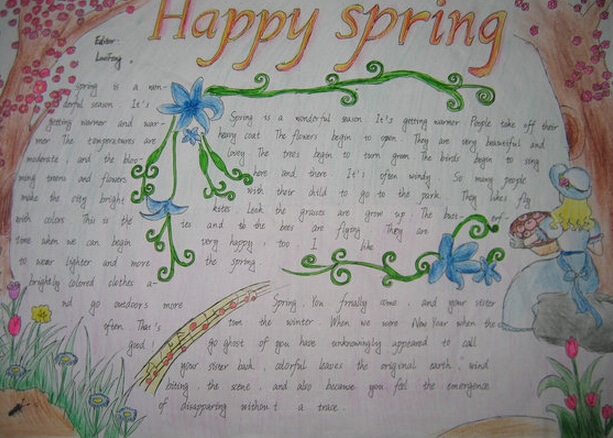 Happy spring
Editor:
spring is a won-
derful season. It's
getting warmer and war-
mer The temperatures are
moderate, and the bloo-
ming trees and flowers
make the city bright
with colors. This is the
time when we can begin
to wear lighter and more
brightly colored clothes a-
nd go outdoors more
often. That's
good!
Spring is a wonderful season It's getting warmer People take off their
heavy coat The flowers begin to open They are very beautiful and
lovey The trees begin to turn green The birds begin to sing
here and there It's often windy. So many people
with their child to go to the park. They likes fly
kites Look the grasses are grow up. The butt- erf-
ies and to the bees are flying They are
very happy, too. I like
the spring.
Spring. You finally come, and your sister
tom the winter. When we were New Year when the
go ghost of you have unknowingly appeared to call
your sister back, colorful leaves the original earth, wind
biting, the scene, and also because you feel the emergence
of disapparing without a trace.